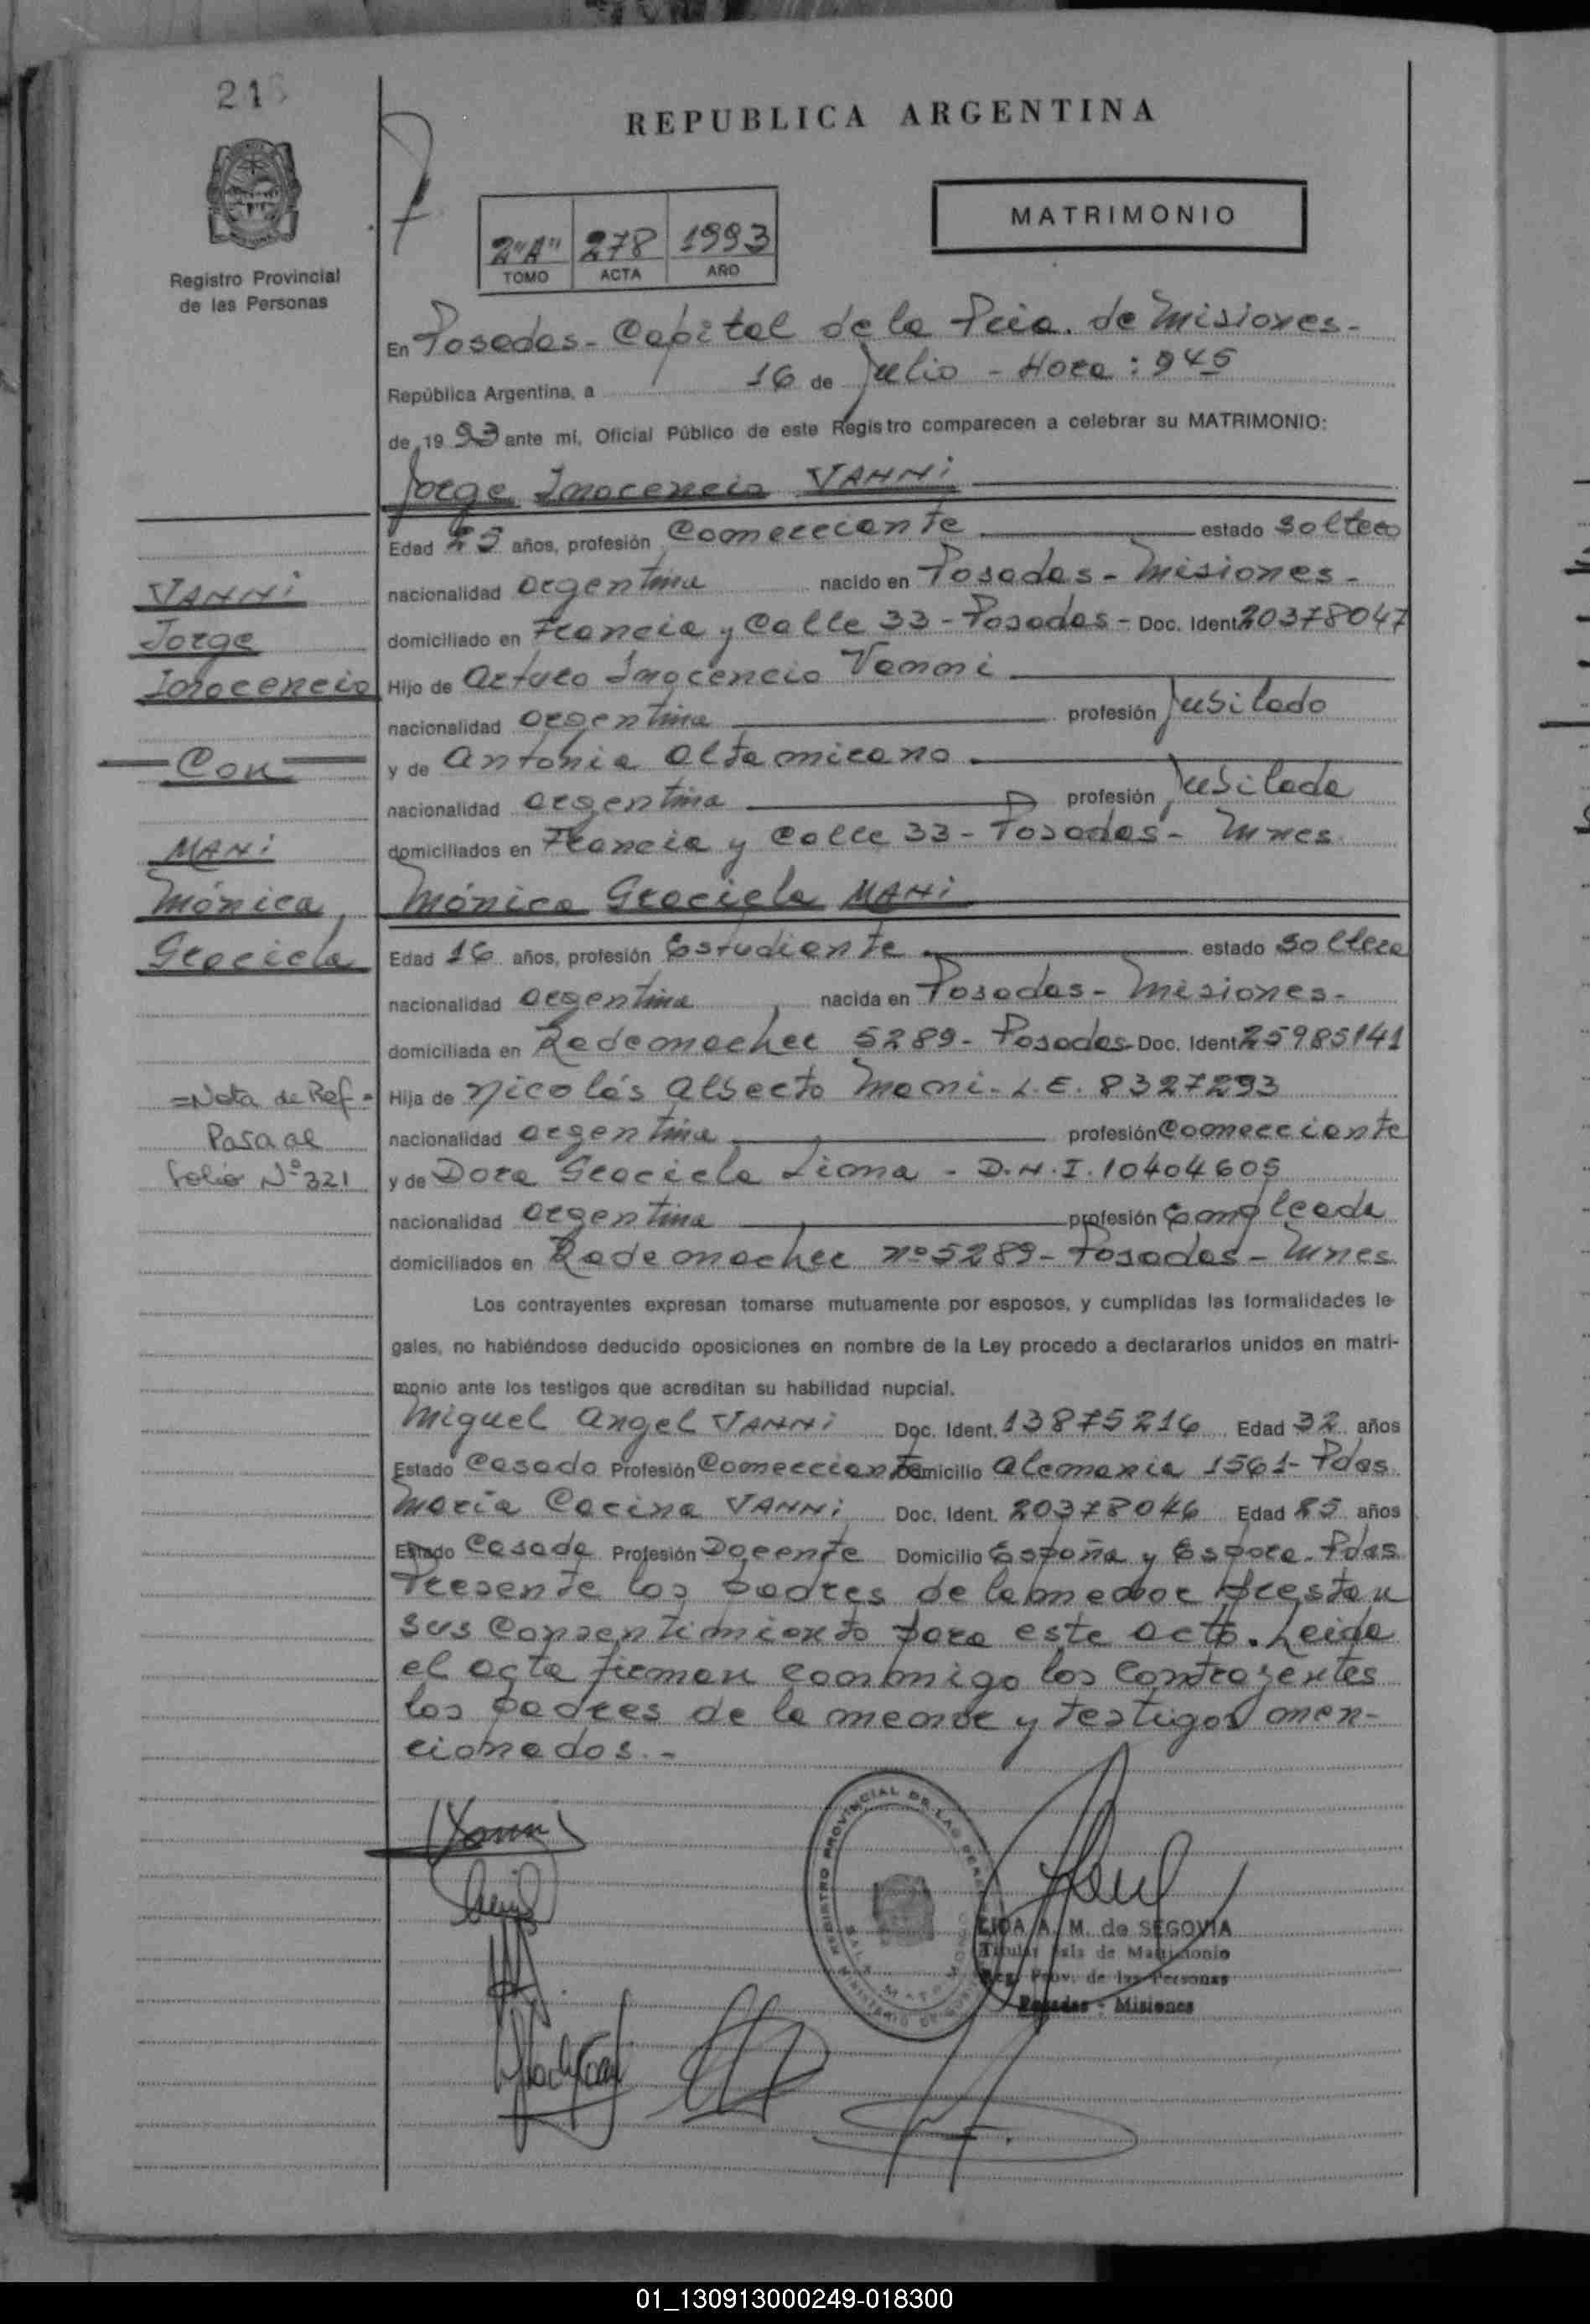 21
REPUBLICA ARGENTINA
Registro Provincial
de las Personas
2"A" 278 1993
TOMO ACTA AÑO
MATRIMONIO
En Posadas - Capital de la Pcia. de Misiones -
República Argentina, a 16 de Julio - Hora: 945
de 1993 ante mi, Oficial Público de este Registro comparecen a celebrar su MATRIMONIO:
Jorge Inocencio VANNi
Edad 25 años, profesión Comerciante estado Soltero
nacionalidad argentina nacido en Posadas - Misiones -
domiciliado en Francia y Calle 33 - Posadas - Doc. Ident 20378047
Hijo de Arturo Inocencio Vanni
nacionalidad argentina profesión Jubilado
y de Antonia Altamirano
nacionalidad argentina profesión Jubilada
domiciliados en Francia y Calle 33 - Posadas - Mnes
Mónica Graciela MANi
Edad 16 años, profesión Estudiante estado Soltera
nacionalidad argentina nacida en Posadas - Misiones -
domiciliada en Rademacher 5289 - Posadas Doc. Ident 25985141
Hija de Nicolás Alberto Mani - L.E. 8327293
nacionalidad argentina profesión Comerciante
y de Dora Graciela Lima - D.N.I. 10404605
nacionalidad argentina profesión Empleada
domiciliados en Rademacher nº 5289 - Posadas - Mnes
VANNi
Jorge
Inocencio
Con
MANi
Mónica
Graciela
=Nota de Ref=
Pasa al
folio Nº 321
Los contrayentes expresan tomarse mutuamente por esposos, y cumplidas las formalidades le-
gales, no habiéndose deducido oposiciones en nombre de la Ley procedo a declararlos unidos en matri-
monio ante los testigos que acreditan su habilidad nupcial.
Miguel Angel VANNi Doc. Ident. 13875216 Edad 32 años
Estado Casado Profesión Comerciante Domicilio Alemania 1561 - Pdas
María Corina VANNi Doc. Ident. 20378046 Edad 25 años
Estado Casada Profesión Docente Domicilio España y Espora - Pdas
Presente los padres de la menor prestan
sus consentimiento para este acto. Leida
el acta firman conmigo los contrayentes
los padres de la menor y testigos men-
cionados. -
REGISTRO PROVINCIAL DE LAS
LIDA A. M. de SEGOVIA
Titular Sala de Matrimonio
Reg. Prov. de las Personas
Posadas - Misiones
01_130913000249-018300